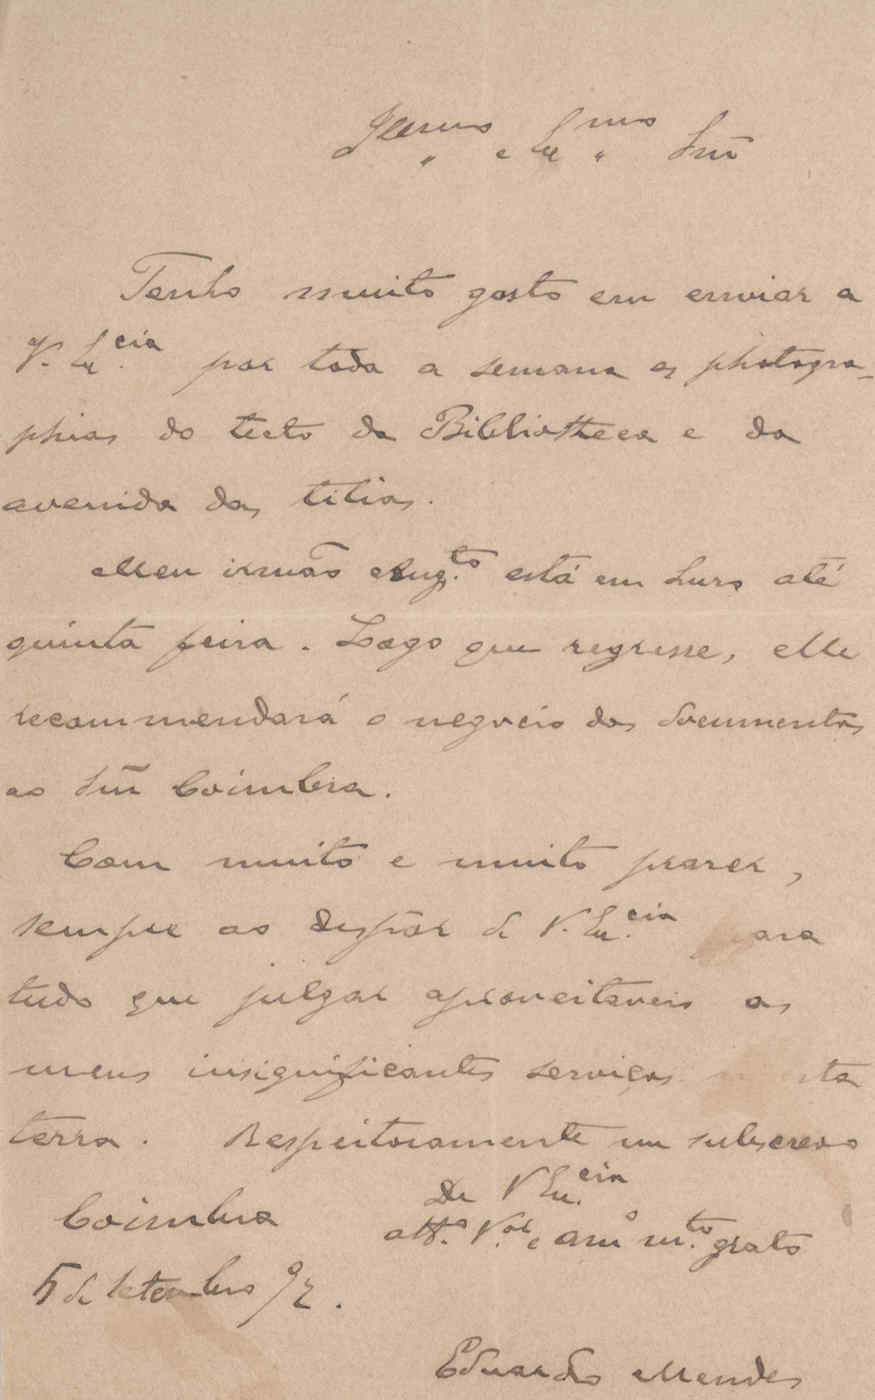 Illmo e Exmo Snr
Tenho muito gosto em enviar a
V. Ex.cia por toda a semana as photogra-
phias do tecto da Bibliotheca e da
avenida das tilias.
Meu irmão Aug.to está em Luso até
quinta feira. Logo que regresse, elle
recommendará o negocio dos documentos
ao Snr Coimbra.
Com muito e muito prazer,
sempre ao dispôr de V. Ex.cia para
tudo que julgar aproveitaveis os
meus insignificantes serviços
terra. Respeitosamente me subscrevo
De V Ex.cia
Coimbra
att.o V.or e am.o m.to grato
5 de Setembro 92.
Eduardo Mendes